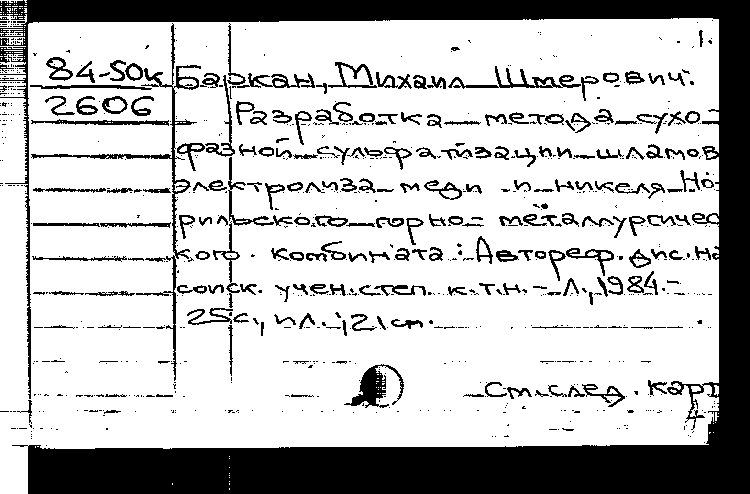 1.
84-50к Баркан, Михаил Шмерович.
2606 Разработка метода сухо-
фазной сульфатизации шламов
электролиза меди и никеля Но-
рильского горно-металлургичес
кого комбината: Автореф. дис. на
соиск. учен. степ. к.т.н. - Л., 1984.-
25с., ил.; 21 см.
См. след. карт
4